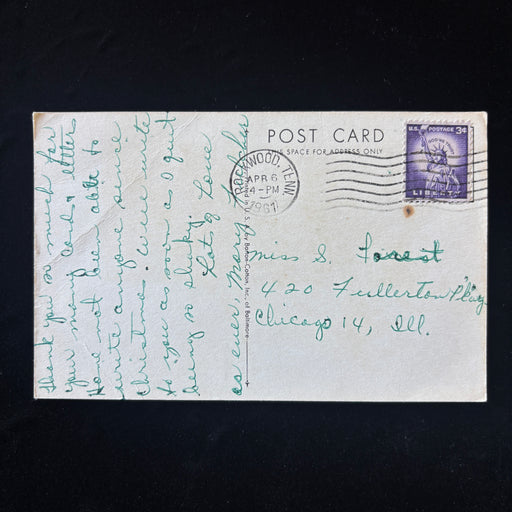 POST CARD
THIS SPACE FOR ADDRESS ONLY
U.S. POSTAGE 3¢
IN GOD WE TRUST
LIBERTY
ROCKWOOD, TENN.
APR 6
4-PM
1961
Miss S. Forest
420 Fullerton Pkwy
Chicago 14, Ill.
Thank you so much for
your many cards & letters
Have not been able to
write anyone since
Christmas. Will write
to you as soon as I quit
being so shaky.
Lots of Love
as ever, Mary
in U.S.A. by Boston-Cotton, Inc., of Baltimore